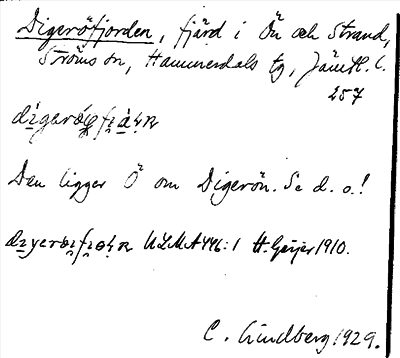 Digeröfjorden, fjärd i Ön och Strand,
Ströms sn, Hammerdals tg, Jämtl. l.
257
Den ligger Ö om Digerön. Se d. o.!
ULMA 446:1 H. Geijer 1910.
C. Lindberg 1929.